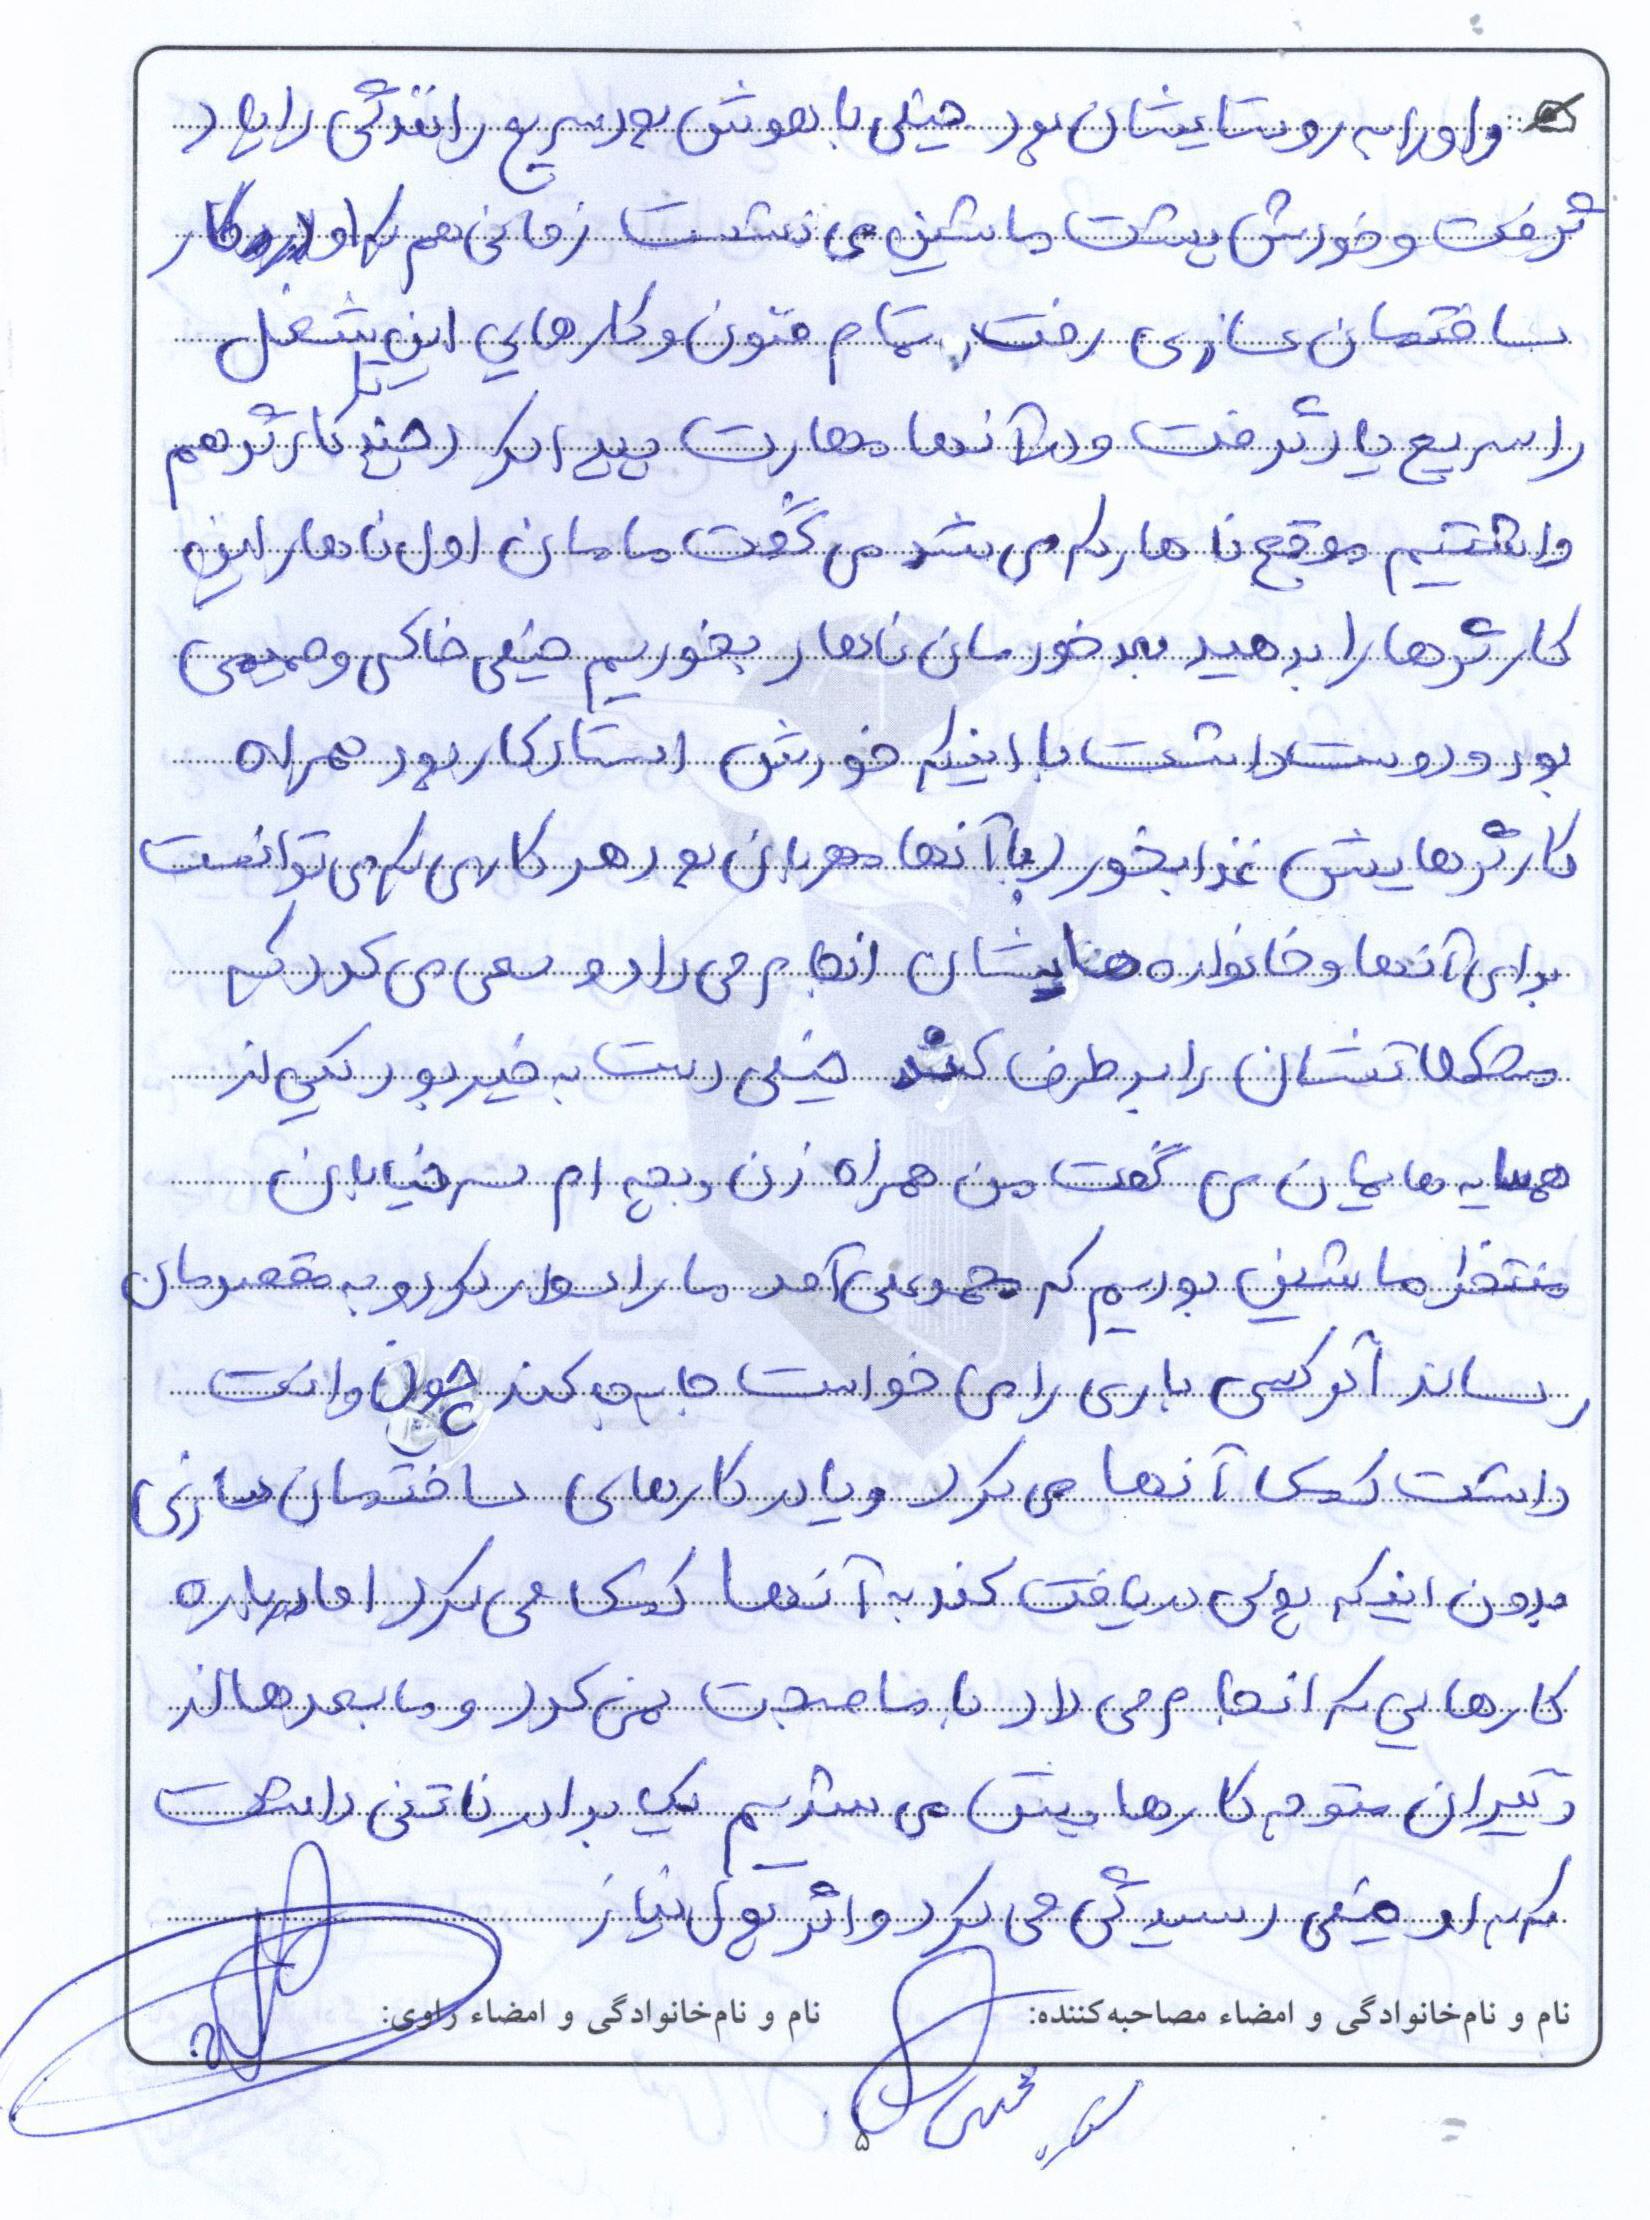 و او را به روستایشان بود خیلی با هوش بود سریع رانندگی را یاد
گرفت و خودش پشت ماشین می نشست زمانی هم که او در کار
ساختمان سازی رفت، تمام فنون و کارهای این شغل
را سریع یاد گرفت و در آنها مهارت پیدا کرد چند کارگر هم
داشتیم موقع ناهار که می شد می گفت مامان اول ناهار این
کارگرها را بدهید بعد خودمان ناهار بخوریم خیلی خاکی و صمیمی
بود و دوست داشت با اینکه خودش استاد کار بود همراه
کارگرهایش غذا بخورد با آنها مهربان بود هر کاری که می توانست
برای آنها و خانواده هایشان انجام می داد و سعی می کرد که
مشکلاتشان را بر طرف کند خیلی دست به خیر بود یکی از
همسایه هایمان می گفت من همراه زن و بچه ام سر خیابان
منتظر ماشین بودیم که محمدعلی آمد ما را سوار کرد و به مقصدمان
رساند اگر کسی باری را می خواست جا به جا کند چون وانت
داشت کمک آنها می کرد و یا در کارهای ساختمان سازی
بدون اینکه پولی دریافت کند به آنها کمک می کرد اما درباره
کارهایی که انجام می داد با ما صحبت نمی کرد و ما بعدها از
دیگران متوجه کارهایش می شدیم یک برادر ناتنی داشت
که به او خیلی رسیدگی می کرد و اگر پول نیاز
نام و نام‌خانوادگی و امضاء مصاحبه‌کننده:
نام و نام‌خانوادگی و امضاء راوی:
۵